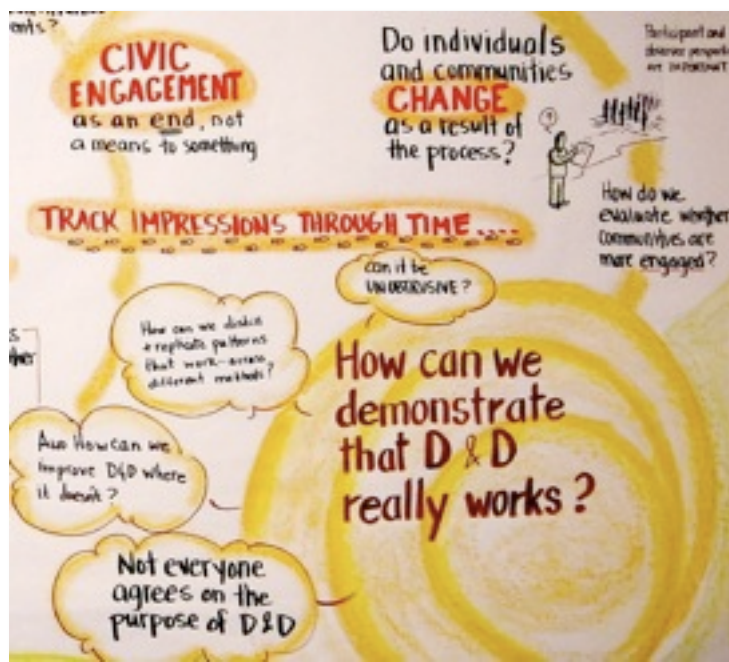 ents?
CIVIC
ENGAGEMENT
as an end, not
a means to something
Do individuals
and communities
CHANGE
as a result of
the process?
Participant and
observer
are IMPORTANT
?
How do we
evaluate whether
communities are
more engaged?
TRACK IMPRESSIONS THROUGH TIME....
can it be
UNOBTRUSIVE?
How can we
+ replicate patterns
that work-across
different methods?
How can we
demonstrate
that D & D
really works?
Also How can we
improve D&D where
it doesn't?
Not everyone
agrees on the
purpose of D&D